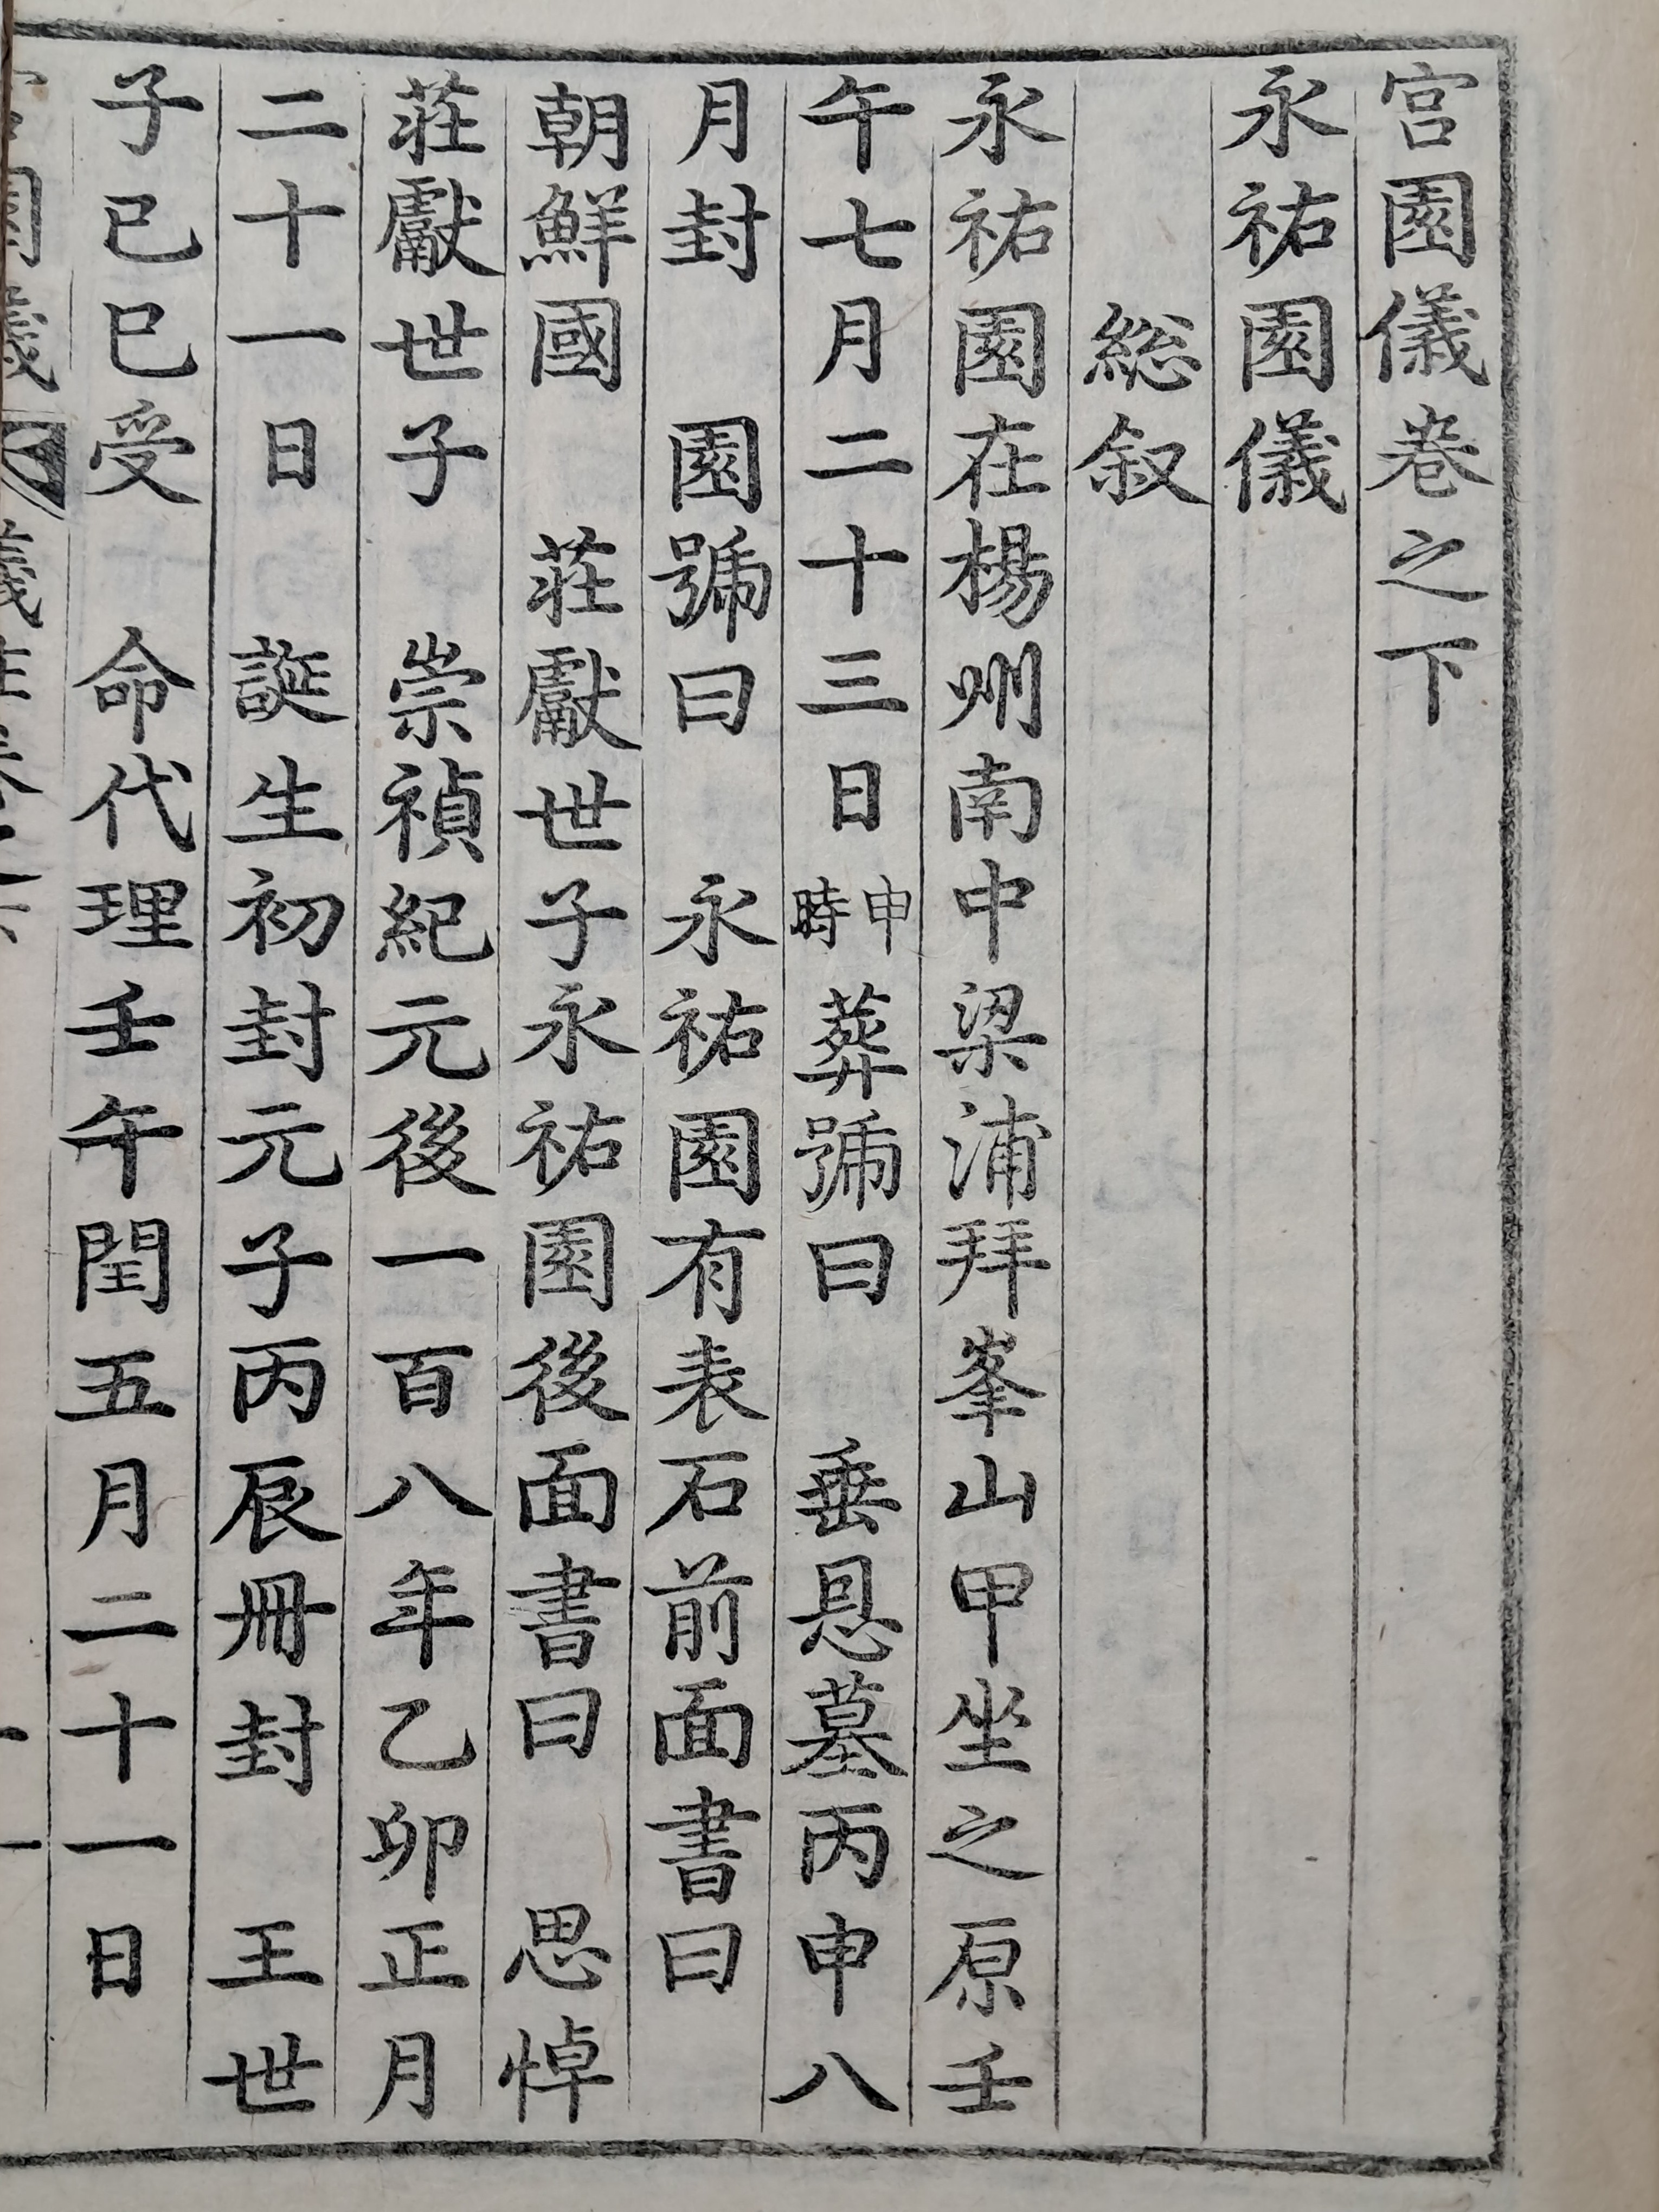 宮園儀卷之下
永祐園儀
總叙
永祐園在楊州南中梁浦拜峯山甲坐之原壬
午七月二十三日申時葬號曰 垂恩墓丙申八
月封 園號曰 永祐園有表石前面書曰
朝鮮國 莊獻世子永祐園後面書曰 思悼
莊獻世子 崇禎紀元後一百八年乙卯正月
二十一日 誕生初封元子丙辰冊封 王世
子己巳受 命代理壬午閏五月二十一日